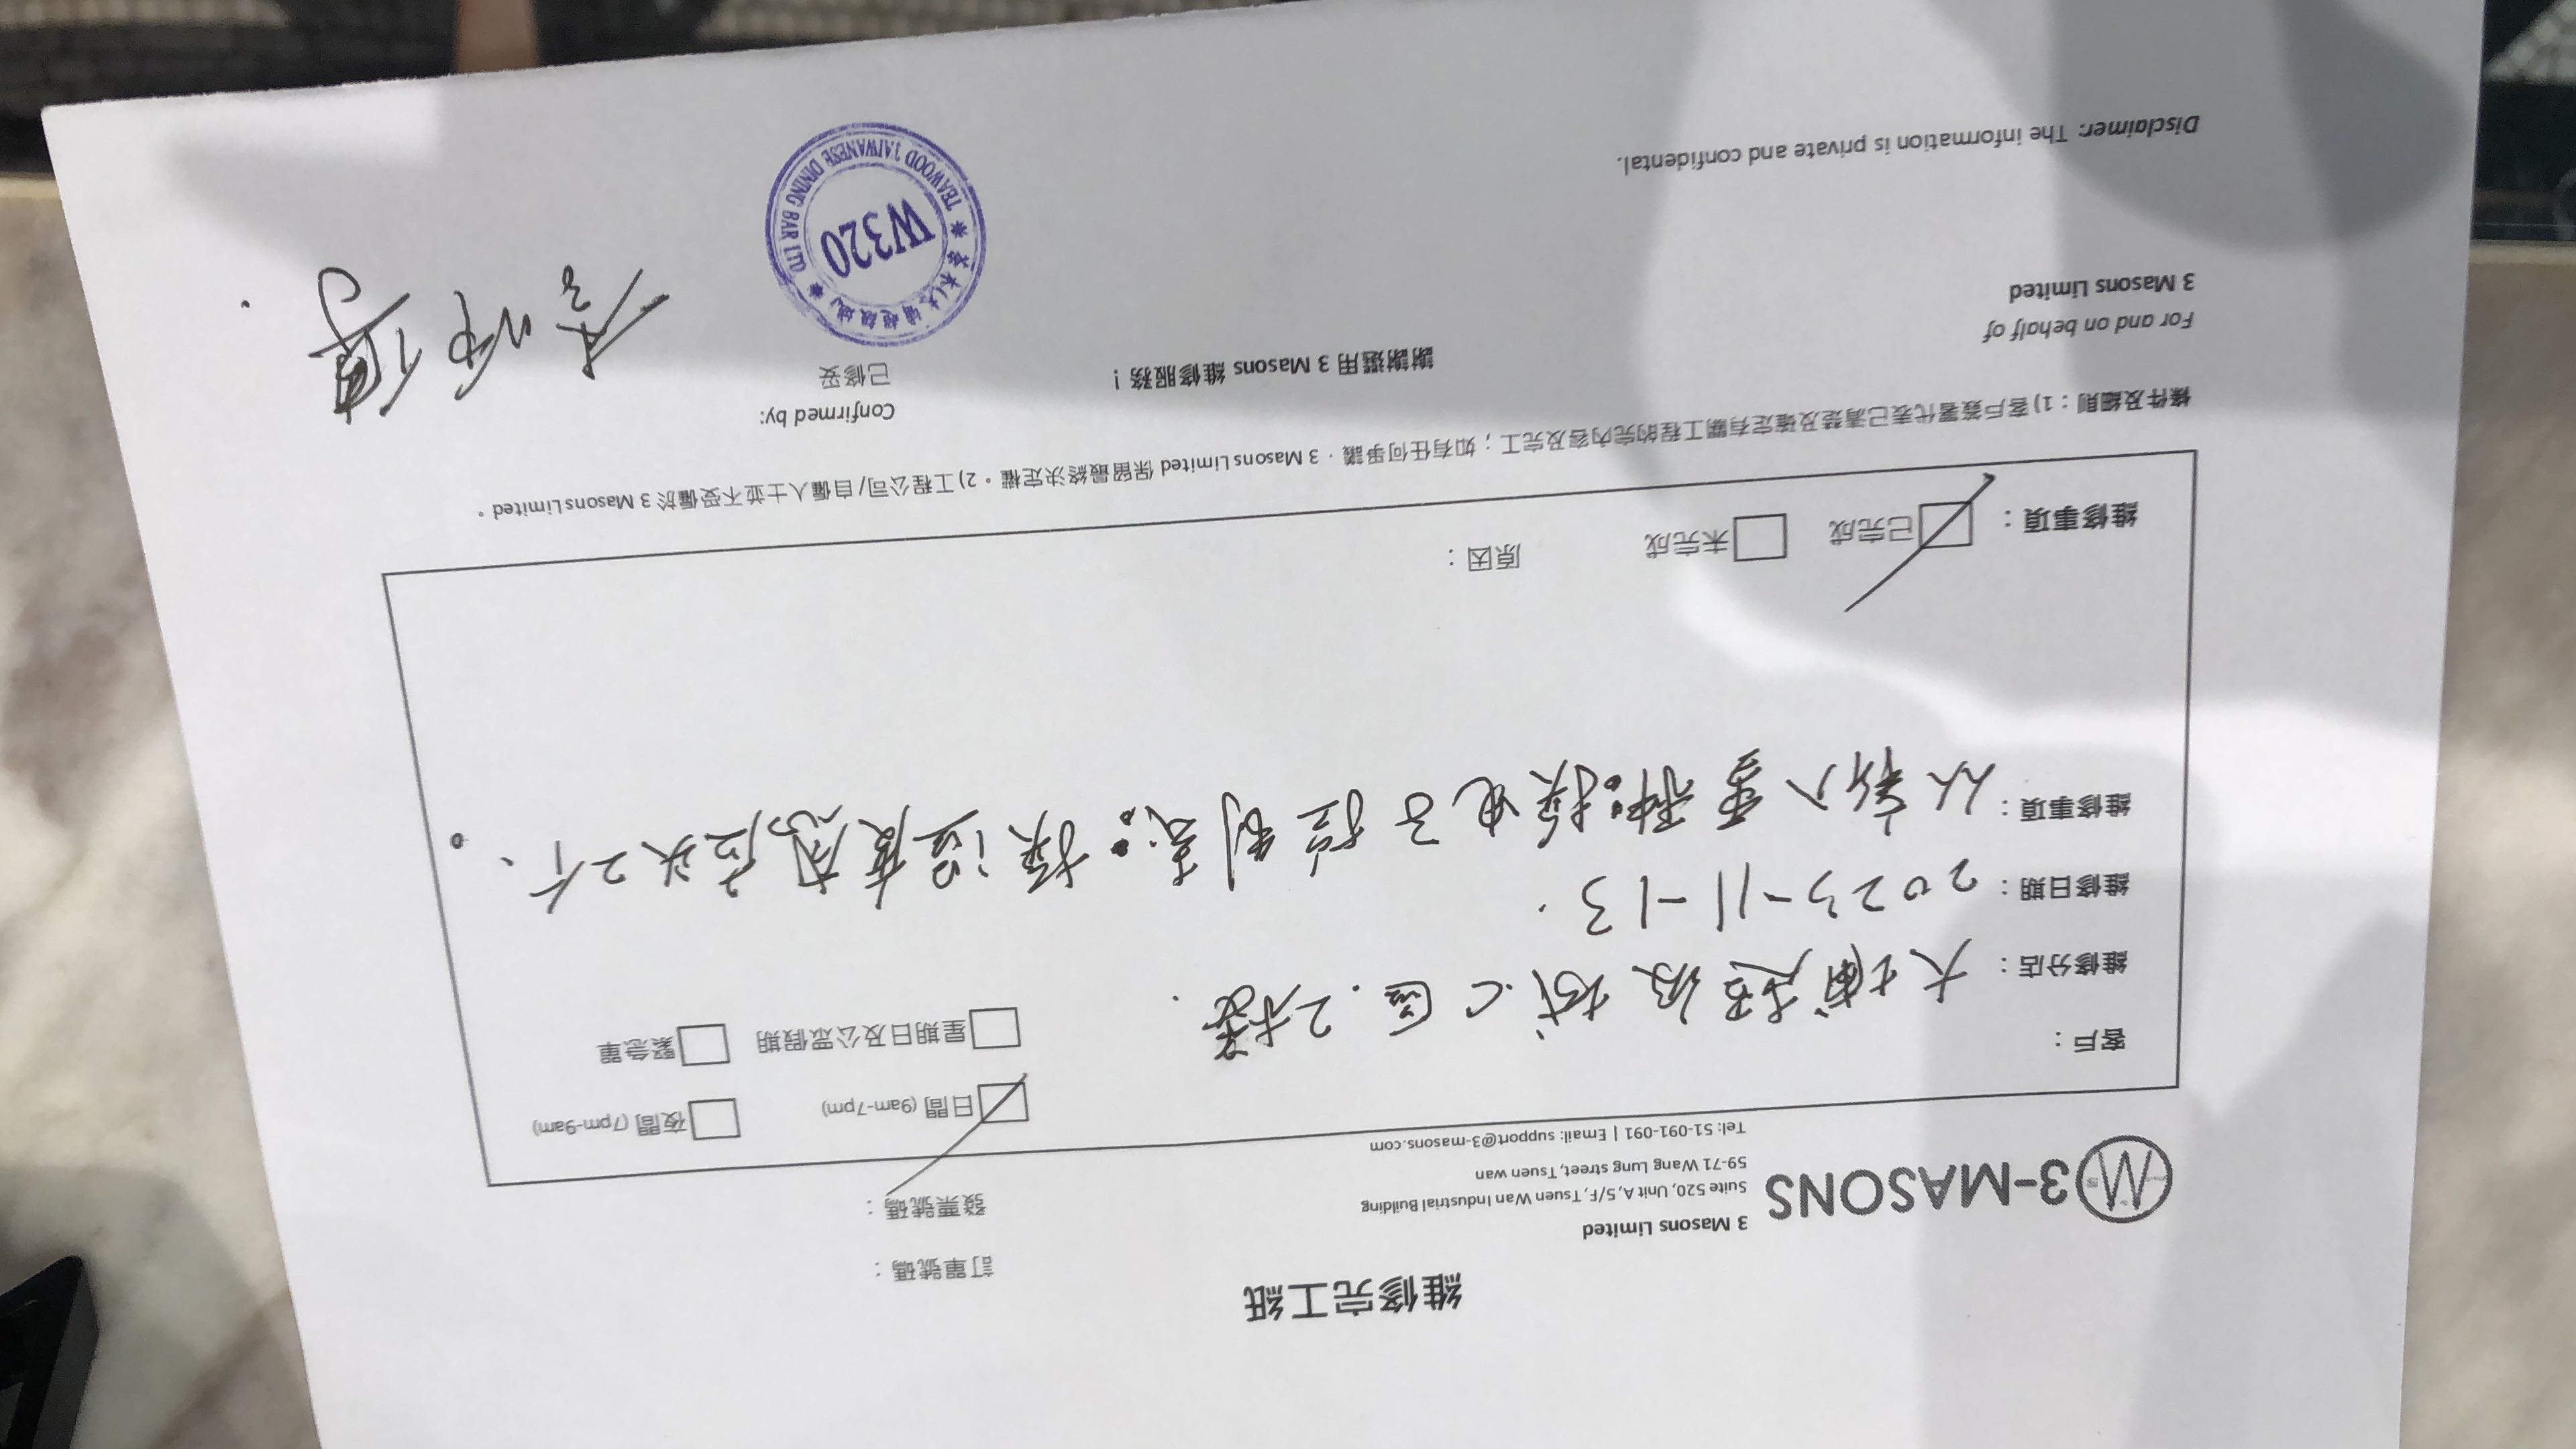 維修完工紙
3-MASONS
3 Masons Limited
Suite 520, Unit A, 5/F, Tsuen Wan Industrial Building
59-71 Wang Lung street, Tsuen wan
Tel: 51-091-091 | Email: support@3-masons.com
訂單號碼：
發票號碼：
日間 (9am-7pm) 夜間 (7pm-9am)
星期日及公眾假期 緊急單
客戶：
維修分店：大埔超级城.C區.2樓.
維修日期：2023-11-13.
維修事項：
電子控制
换温度感应头2个、
維修事項： 已完成 未完成 原因：
條件及細則：1) 客戶簽署代表已清楚及確定有關工程的完內容及完工；如有任何爭議，3 Masons Limited 保留最終決定權。2) 工程公司/自僱人士並不受僱於 3 Masons Limited。
謝謝選用 3 Masons 維修服務！
For and on behalf of
3 Masons Limited
Confirmed by:
已修妥
TEAWOOD TAIWANESE DINING BAR LTD
W320
Disclaimer: The information is private and confidental.